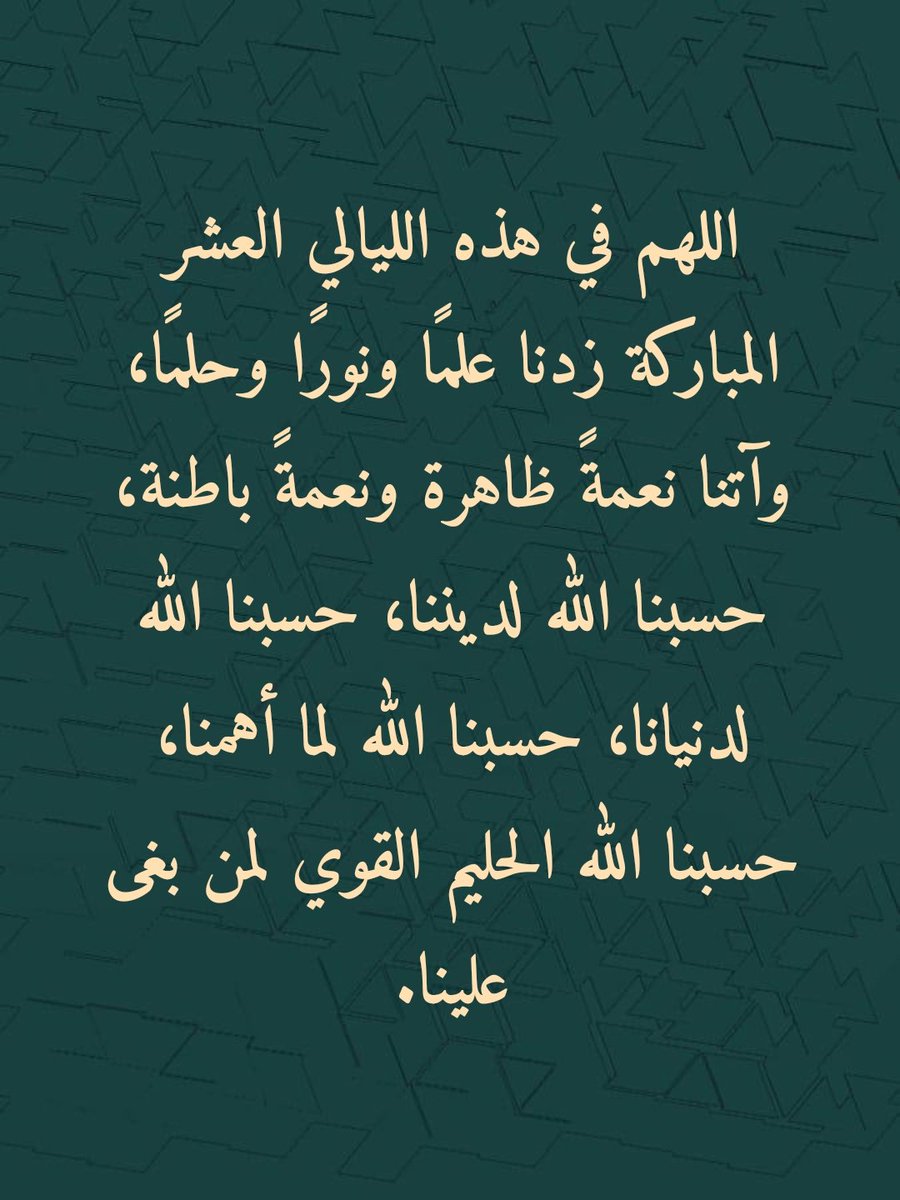 اللهم في هذه الليالي العشر
المباركة زدنا علمًا ونورًا وحلمًا،
وآتنا نعمةً ظاهرة ونعمةً باطنة،
حسبنا الله لديننا، حسبنا الله
لدنيانا، حسبنا الله لما أهمنا،
حسبنا الله الحليم القوي لمن بغى
علينا.